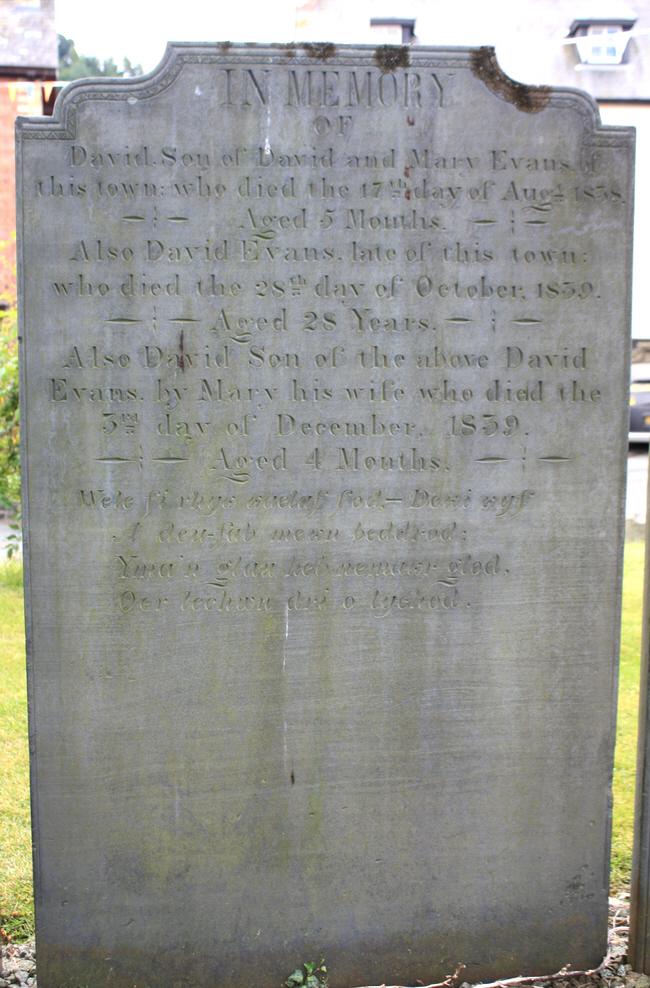 IN MEMORY
OF
David, Son of David and Mary Evans, of
this town: who died the 17th day of Augst 1838.
Aged 5 Months.
Also David Evans, late of this town:
who died the 28th day of October, 1839.
Aged 28 Years.
Also David Son of the above David
Evans, by Mary his wife who died the
3rd day of December, 1839.
Aged 4 Months.
fod,— Dewi
A deu-fab mewn beddrod;
Yma'n heb glod,
Oer dri o